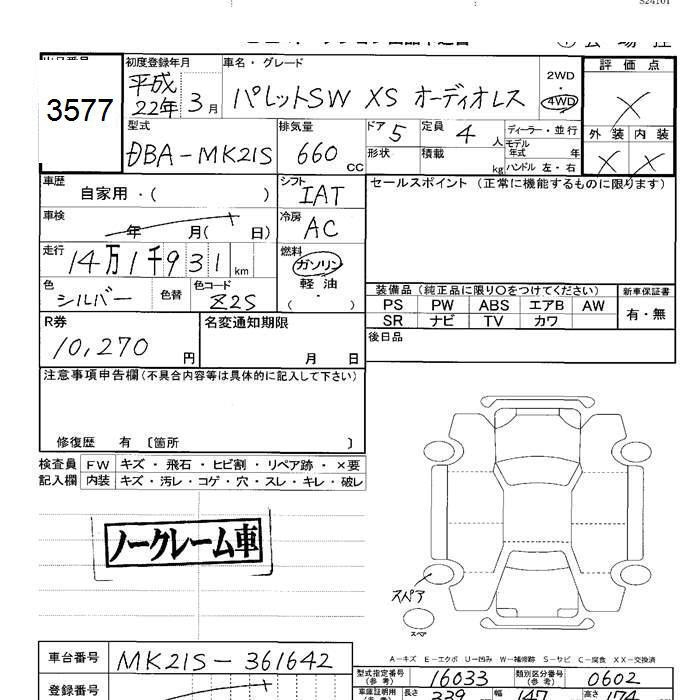 S24101
3577
初度登録年月
平成
22年 3月
車名・グレード
パレットSW XS オーディオレス
2WD
・
4WD
評価点
X
外装 内装
X X
型式
DBA-MK21S
排気量
660 CC
ドア 5
形状
定員 4 人
積載 kg
ディーラー・並行
モデル年式 年
ハンドル 左・右
車歴
自家用・( )
シフト
IAT
セールスポイント (正常に機能するものに限ります)
車検
年 月( 日)
冷房
AC
走行
14万1千931 km
燃料
ガソリン
軽油
( ・ )
色
シルバー
色替
色コード
Z2S
装備品 (純正品に限り○をつけてください)
新車保証書
PS PW ABS エアB AW
有・無
SR ナビ TV カワ
R券
10,270 円
名変通知期限
月 日
後日品
注意事項申告欄 (不具合内容等は具体的に記入して下さい)
修復歴 有 〔箇所 〕
検査員 FW キズ・飛石・ヒビ割・リペア跡・×要
記入欄 内装 キズ・汚レ・コゲ・穴・スレ・キレ・破レ
ノークレーム車
スペア
スペア
A-キズ E-エクボ U-凹み W-補修跡 S-サビ C-腐食 XX-交換済
車台番号 MK21S-361642
型式指定番号(参考) 16033 類別区分番号(参考) 0602
登録番号
車庫証明用(参考) 長さ 339 幅 147 高さ 174